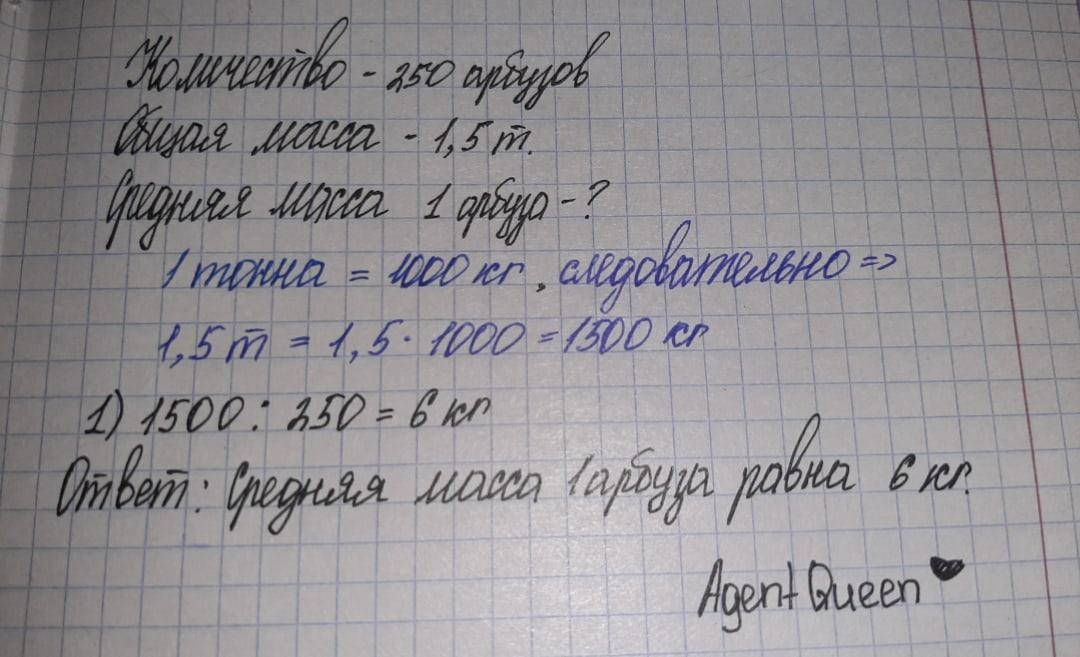 Количество - 250 арбузов
Общая масса - 1,5 т.
Средняя масса 1 арбуза - ?
1 тонна = 1000 кг, следовательно =>
1,5 т = 1,5 · 1000 = 1500 кг
1) 1500 : 250 = 6 кг
Ответ: Средняя масса 1 арбуза равна 6 кг.
Agent Queen ♥